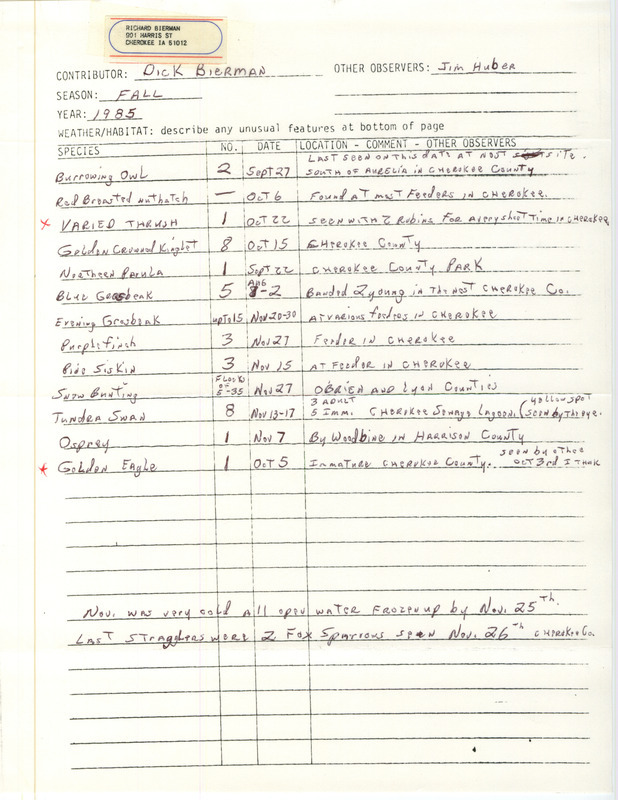 RICHARD BIERMAN
901 HARRIS ST
CHEROKEE IA 51012
CONTRIBUTOR: DICK BIERMAN OTHER OBSERVERS: Jim Huber
SEASON: FALL
YEAR: 1985
WEATHER/HABITAT: describe any unusual features at bottom of page
SPECIES NO. DATE LOCATION - COMMENT - OTHER OBSERVERS
LAST SEEN ON THIS DATE AT NEST site.
Burrowing Owl 2 Sept 27 SOUTH OF AURELIA IN CHEROKEE COUNTY
Red Breasted nuthatch — Oct 6 Found AT most Feeders in CHEROKEE.
x VARIED THRUSH 1 Oct 22 SEEN WITH 2 Robins FOR A very short Time in CHEROKEE
Golden Crowned Kinglet 8 Oct 15 CHEROKEE COUNTY
Northern Parula 1 Sept 22 CHEROKEE COUNTY PARK
Blue Grosbeak 5 AUG 8-2 Banded 2 young in The nest CHEROKEE Co.
Evening Grosbeak up to 15 Nov 20-30 AT VARIOUS feeders in CHEROKEE
Purple finch 3 Nov 27 Feeder in CHEROKEE
Pine Siskin 3 Nov 15 AT Feeder in CHEROKEE
Snow Bunting Flocks OF 5-35 Nov 27 OBRIEN AND Lyon Counties
3 ADULT yellow spot
Tundra Swan 8 Nov 13-17 5 Imm. CHEROKEE Sewage Lagoon. (seen by The eye.
Osprey 1 Nov 7 By Woodbine in HARRISON COUNTY
seen by other
* Golden Eagle 1 Oct 5 Immature CHEROKEE County. OCT 3rd I THINK
Nov. was very cold All open water Frozen up by Nov. 25Th.
LAST Stragglers were 2 Fox Sparrows seen Nov. 26Th CHEROKEE Co.